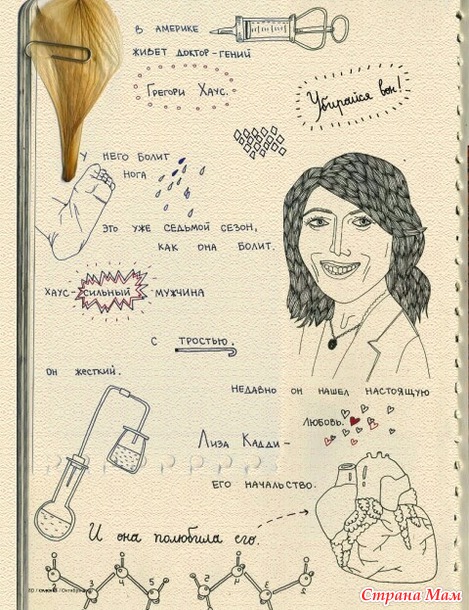 В АМЕРИКЕ
ЖИВЕТ ДОКТОР-ГЕНИЙ
ГРЕГОРИ ХАУС.
Убирайся вон!
У НЕГО БОЛИТ
НОГА
ЭТО УЖЕ СЕДЬМОЙ СЕЗОН,
КАК ОНА БОЛИТ.
ХАУС-СИЛЬНЫЙ МУЖЧИНА
С ТРОСТЬЮ.
ОН ЖЕСТКИЙ.
НЕДАВНО ОН НАШЕЛ НАСТОЯЩУЮ
ЛЮБОВЬ.
ЛИЗА КАДДИ-
ЕГО НАЧАЛЬСТВО.
И она полюбила его.
Страна Мам